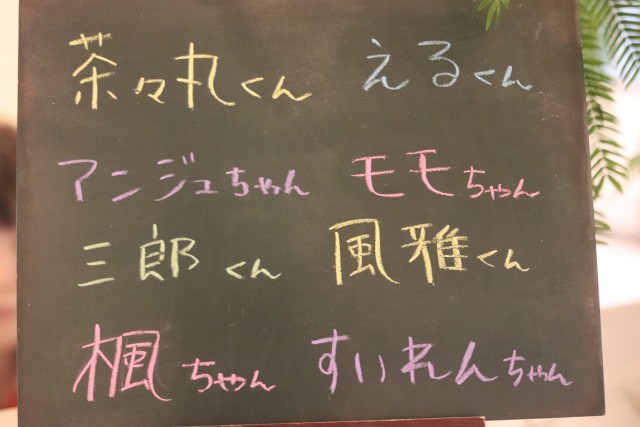 茶々丸くん えるくん
アンジュちゃん モモちゃん
三郎くん 風雅くん
楓ちゃん すいれんちゃん